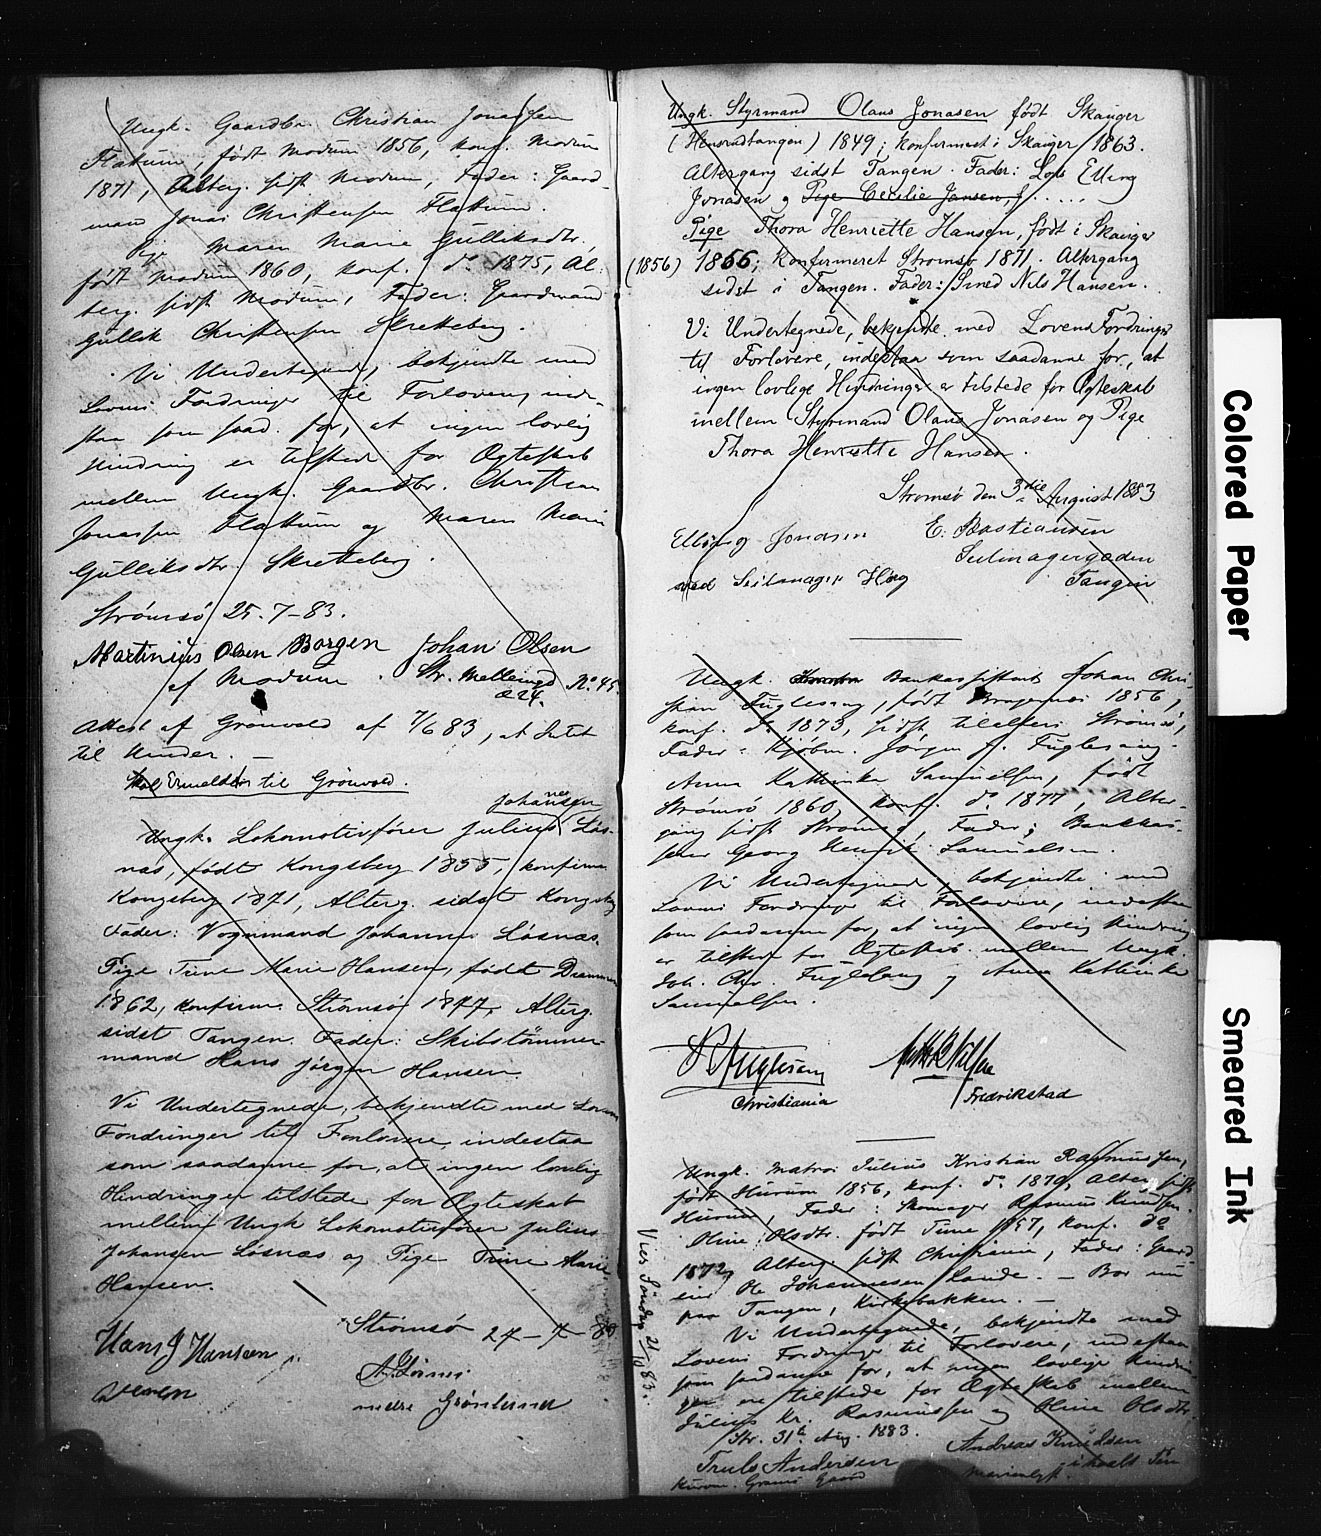 Ungk. Gaardbr. Christian Jonassen
Flattum, født Modum 1856, konf. Modum
1871, Alterg. sidst Modum, Fader: Gaard-
mand Jonas Christensen Flattum.
Pige Maren Marie Gulliksdtr.,
født Modum 1860, konf. do 1875, Al-
terg. sidst Modum, Fader: Gaardmand
Gullik Christensen Skretteberg.
Vi Undertegnede, bekjendte med
Lovens Fordringer til Forlovere, inde-
staa som saad. for, at ingen lovlig
Hindring er tilstede for Ægteskab
mellem Ungk. Gaardbr. Christian
Jonassen Flattum og Maren Marie
Gulliksdtr. Skretteberg.
Strømsø 25-7-83.
Martinius Olsen Borgen Johan Olsen
af Modum. Str. Mellemgd No 45.
a 24.
Attest af Grønvold af 7/6 83, at Intet
til Hinder.
Skal Anmeldes til Grønvold.
Johannes
Ungk. Lokomotivfører Julius Løs-
næs, født Kongsberg 1855, konfirm.
Kongsberg 1871, Alterg. sidst Kongsberg
Fader: Vognmand Johannes Løsnæs.
Pige Trine Marie Hansen, født Drammen
1862, konfirm. Strømsø 1877, Alterg.
sidst Tangen. Fader: Skibstømmer-
mand Hans Jørgen Hansen.
Vi Undertegnede, bekjendte med Lovens
Fordringer til Forlovere, indestaa
som saadanne for, at ingen lovlig
Hindringer tilstede for Ægteskab
mellem Ungk Lokomotivfører Julius
Johansen Løsnæs og Pige Trine Marie
Hansen.
Strømsø 27-7-83
Hans J Hansen
nedre Grønland
Ungk. Styrmand Olaus Jonasen født Skauger
(Hernæstangen) 1849; konfirmeret i Skauger 1863.
Altergang sidst Tangen. Fader: Lods Elling
Jonasen og Pige Cecilie Jansen, f.....
Pige Thora Henriette Hansen, født i Skauger
(1856) 1866; Konfirmeret Strømsø 1871. Altergang
sidst i Tangen. Fader: Smed Nils Hansen.
Vi Undertegnede, bekjendte med Lovens Fordringer
til Forlovere, indestaa som saadanne for, at
ingen lovlige Hindringer er tilstede for Ægteskab
mellem Styrmand Olaus Jonasen og Pige
Thora Henriette Hansen.
Strømsø den 3die August 1883
Elling Jonasen E. Bastiansen
Seilmagergaden
ved Seilmager Høeg Tangen
Ungk. Bankassistent Johan Chri-
stian Fuglesang, født Bragernes 1856,
konf. do 1873, sidst tilalters Strømsø,
Fader: Kjøbm. Jørgen F. Fuglesang.
Anna Kathinka Samuelsen, født
Strømsø 1860, konf. do 1877, Alter-
gang sidst Strømsø, Fader: Bankkas-
serer Georg Henrik Samuelsen.
Vi Undertegnede, bekjendte med
Lovens Fordringer til Forlovere, indestaa
som saadanne for, at ingen lovlig Hindring
er tilstede for Ægteskab mellem Ungk.
Joh. Chr. Fuglesang og Anna Kathinka
Samuelsen.
Fuglesang
Christiania Fredrikstad
Ungk. Matros Julius Kristian Rasmussen,
født Hurum 1856, konf. do 1870, Alterg. sidst
Hurum, Fader: Skomager Rasmus Knudsen.
Oline Olsdtr. født Tune 1857, konf. do
1872, Alterg. sidst Christiania, Fader: Gaard-
eier Ole Johannesen Lande. – Bor nu
paa Tangen, Kirkebakken. –
Vi Undertegnede, bekjendte med
Lovens Fordringer til Forlovere, indestaa
som saadanne for, at ingen lovlige Hindrin-
ger ere tilstede for Ægteskab mellem
Julius Kr. Rasmussen og Oline Olsdtr.
Str. 31te Aug. 1883.
Truls Andersen Andreas Knudsen
Vies Søndag 21/10 83.
Colored Paper
Smeared Ink